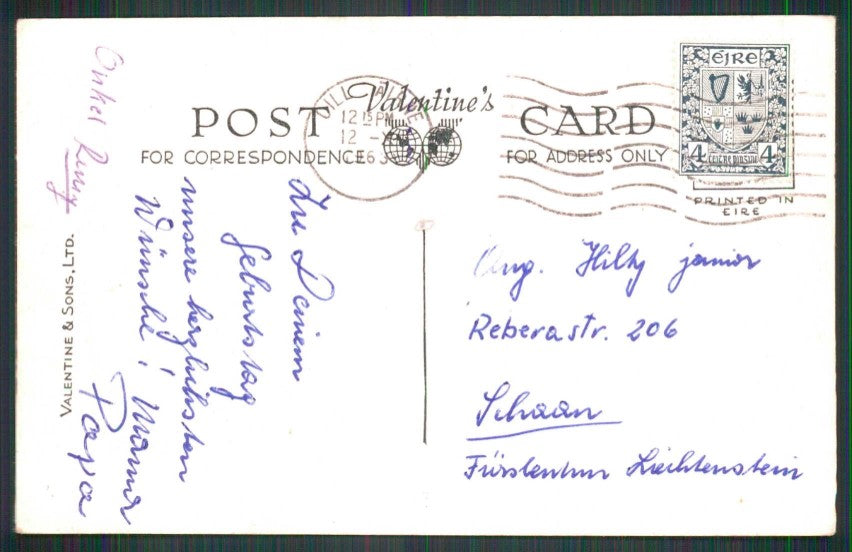 Valentine's
POST CARD
FOR CORRESPONDENCE
FOR ADDRESS ONLY
12 15 PM
12
63
éire
4 4
PRINTED IN
EIRE
Zu Deinem
Geburtstag
unsere herzlichsten
Wünsche! Mama
Papa
Onkel
VALENTINE & SONS, LTD.
Aug. Hilty junior
Reberastr. 206
Schaan
Fürstentum Liechtenstein